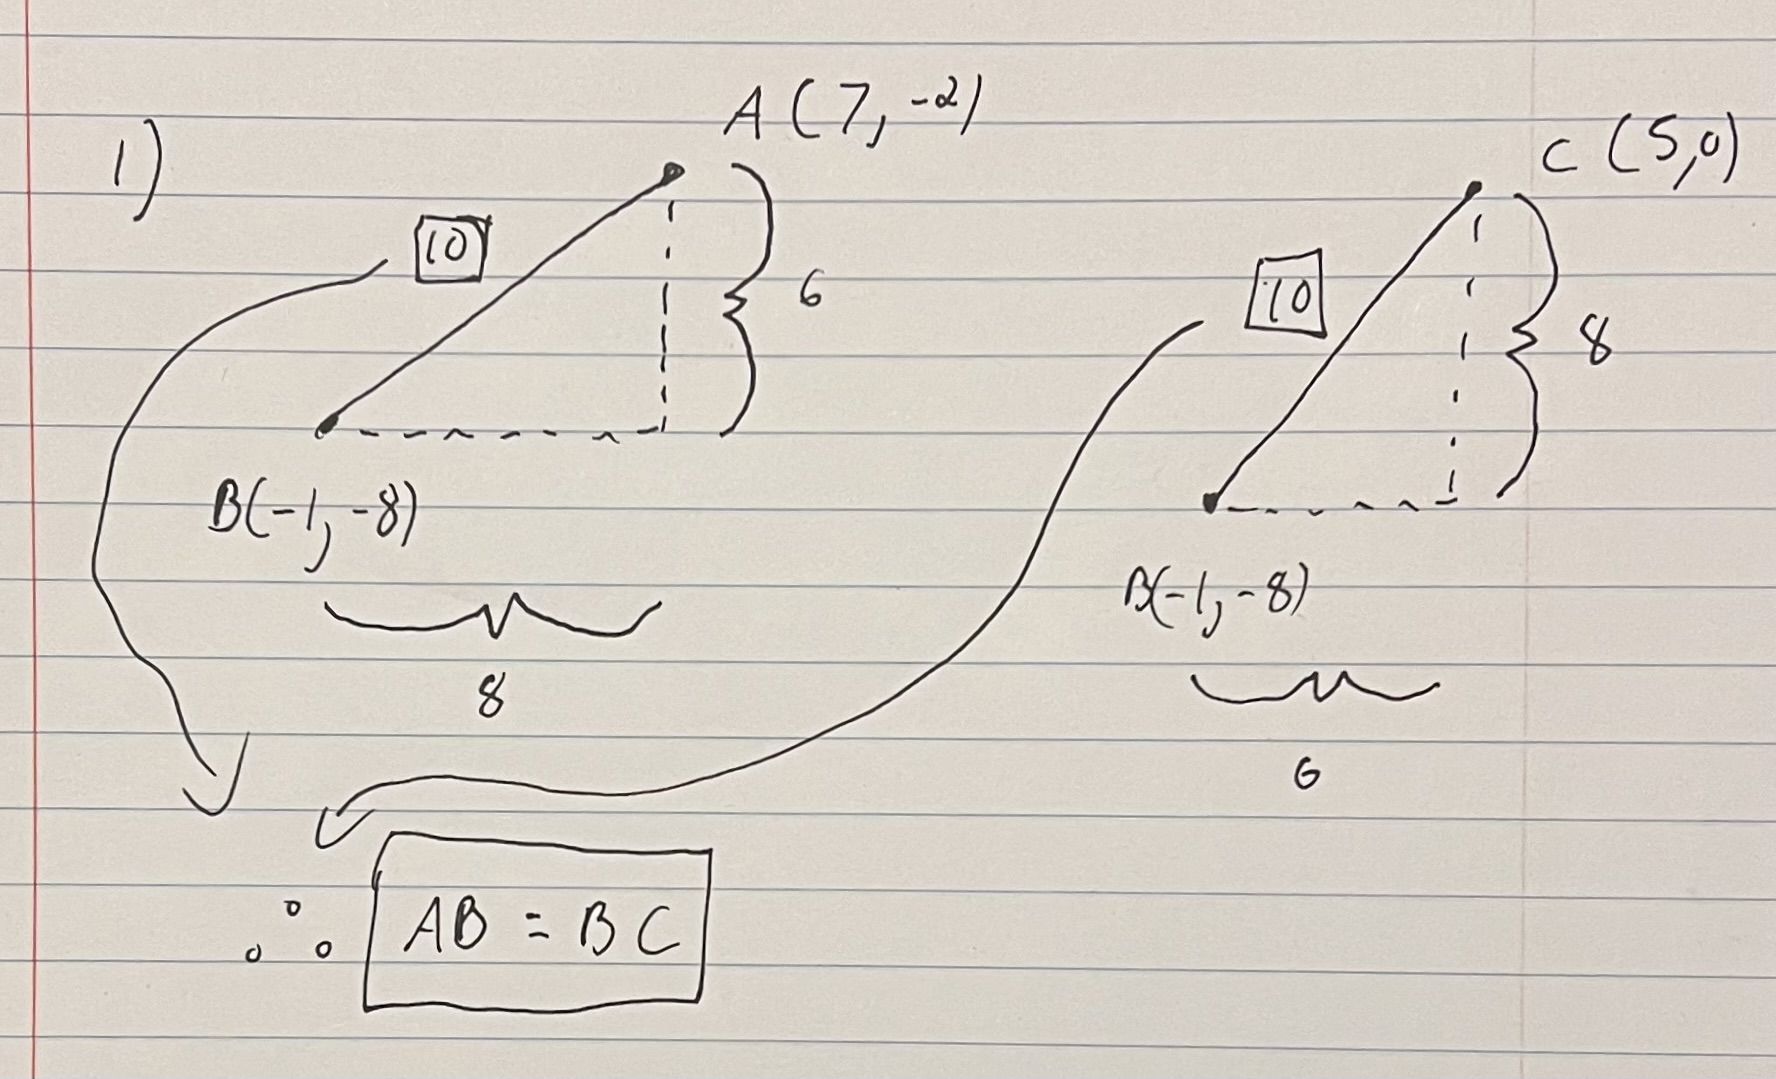 1)
A (7, -2)
C (5,0)
10
6
10
8
B(-1, -8)
B(-1, -8)
8
6
∴ AB = BC